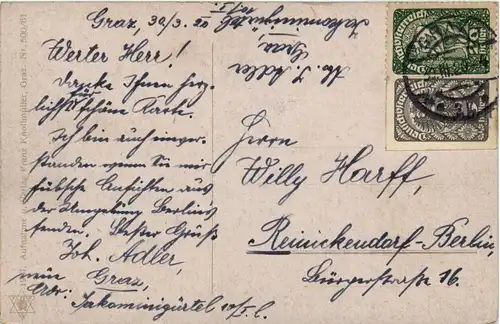 Graz, 30/3. 20
Werter Herr!
Danke Ihnen herz-
lichst für schöne Karte.
Ich bin auch einver-
standen wenn Sie mir
hübsche Ansichten aus
der Umgebung Berlins
senden. Bester Gruß
Joh. Adler,
meine Graz,
Adr: Jakominigürtel
Adler
Graz
Herrn
Willy Harff,
Reinickendorf-Berlin,
Bürgerstraße 16.
Deutschösterreich
20
Heller
Aufnahme u. Verlag Franz Knollmüller, Graz. Nr. 500/81